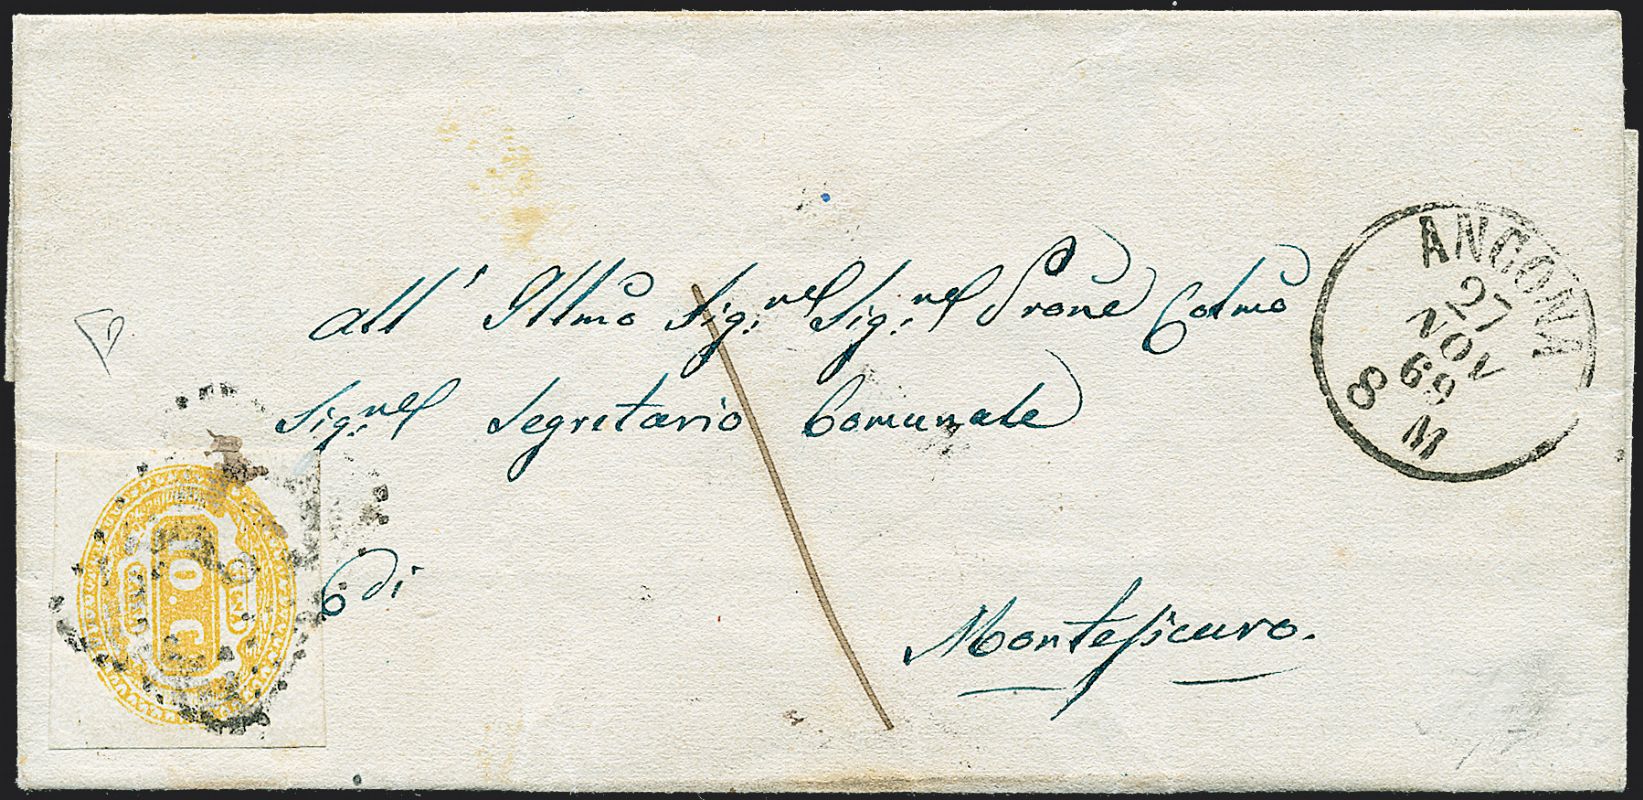 All' Illmo Sig.re Sig.re Prone Colmo
Sig.re Segretario Comunale
di
Montesicuro.
ANCONA
27
NOV
69
8 M
C. 10